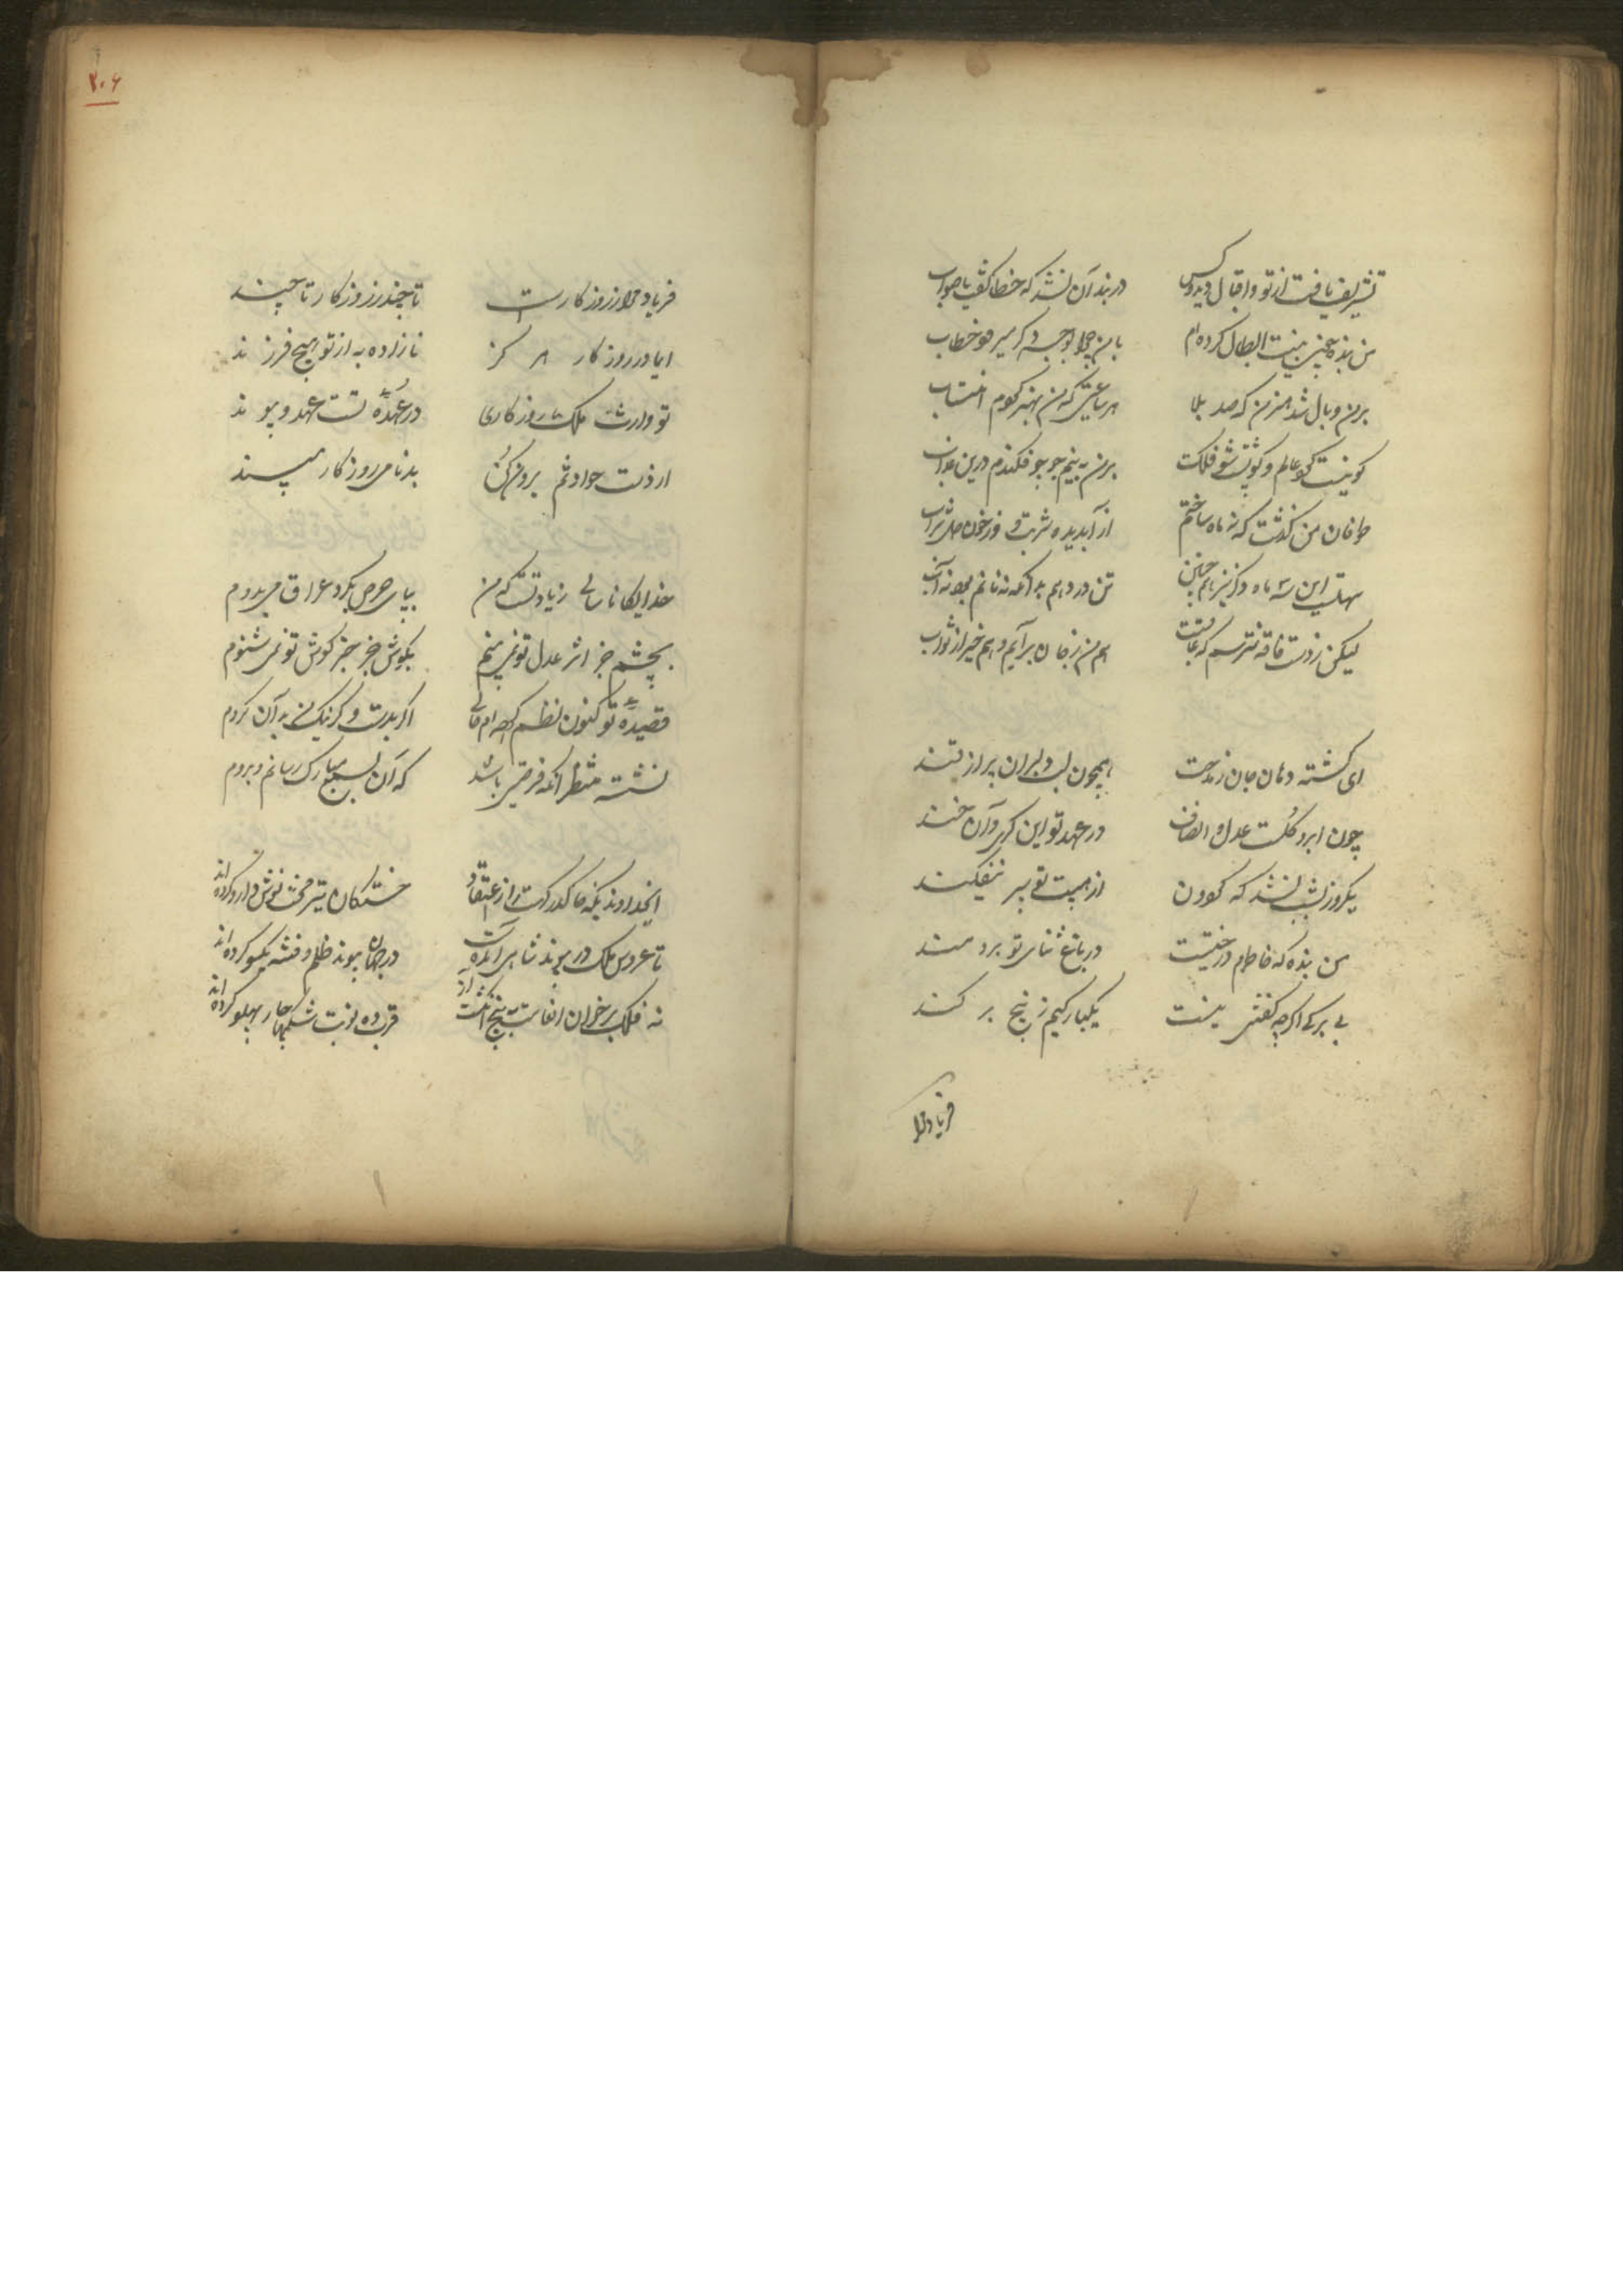 تشریف یافت از تو و اقبال دید و بس در بند آن نشد که خطا گفت یا صواب
من بنده
بر من وبال شد هنر من که صد بلا هر ساعتی که من بهنر کوم انتساب
کو نیست کو عالم و
طوفان من گذشت که نه ماه ساختم از آب دیده شربت و از خون دل شراب
سهلست این سه ماه دگر نیز هم چنین تن در دهم بدانکه نه نانم بود نه آب
لیکن ز دست فاقه نترسم که عاقبت هم من ز جان برآیم و هم خیر از ثواب
ای گشته دهان جان ز مدحت همچون لب دلبران پر از قند
چون ابر و گلست عدل و انصاف در عهد تو این گری و آن خند
یکروز نشد که گردون از هیبت تو سپر نیفکند
من بنده که خاطرم درختیست در باغ ثنای تو برومند
بی برگی اگرچه کفتنی نیست یکبارگیم ز بیخ بر کند
فریاد مرا
۲۰۶
فریاد مرا ز روزگارست تا چند ز روزگار تا چند
ای مادر روزگار هر کز نازاده به از تو هیچ فرزند
تو وارث ملک روزگاری در عهدۀ تست عهد و پیوند
از دست حوادثم برون کن بدنامی روزگار مپسند
خدایگانا سالی زیادتست که من بپای حرص بگرد عراق می دوم
بچشم جز اثر عدل تو نمی بینم بگوش جز خبر کوش تو نمی شنوم
قصیدۀ تو کنون نظم کرده ام حالی اگر بدست و گر نیک من به آن گروم
نشسته منتظر آنکه فرصتی باشد که آن بسمع مبارک رسانم و بروم
ایخداوندیکه خاک درگهت را از اعتقاد خستگان تیر محنت نوش دارو کرده اند
تا عروس ملک در پیوند شاهی آمده است در جهان پیوند ظلم و فتنه یکسو کرده اند
نه فلک بر خوان انعامت به پنج انگشت از قرب ده نوبت شکمها چار پهلو کرده اند